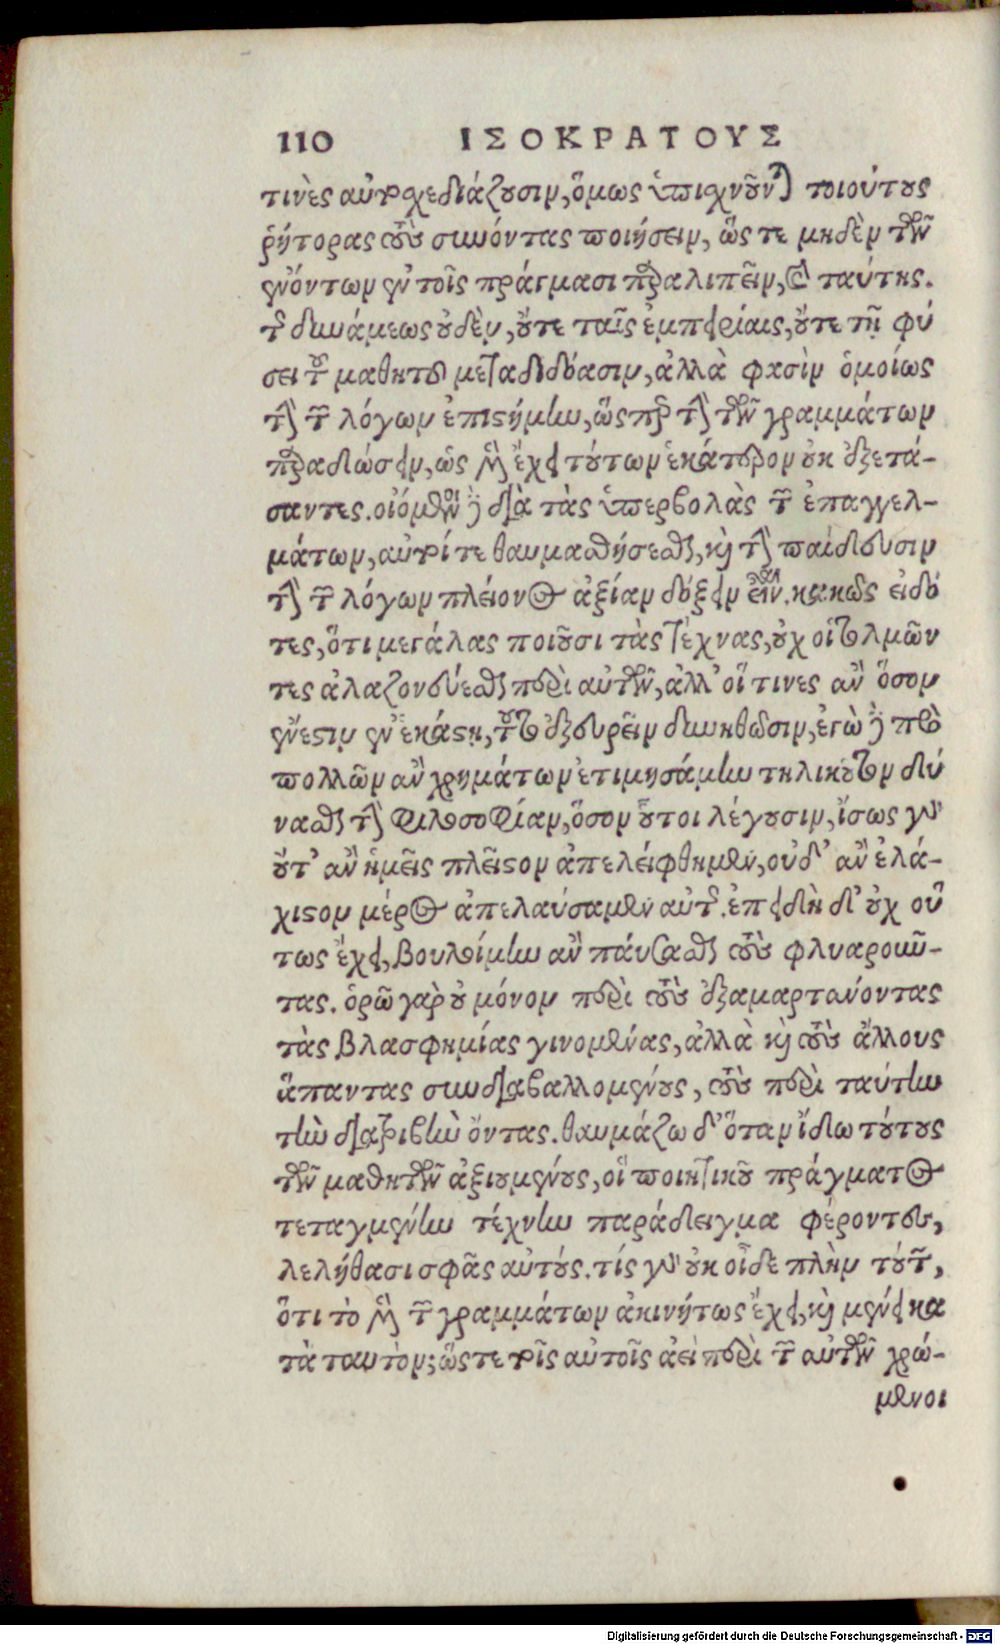 110 ΙΣΟΚΡΑΤΟΥΣ
τινὲς αὐτοσχεδιάζουσιν, ὅμως ὑπισχνοῦνται τοιούτους
ῥήτορας τοὺς συνόντας ποιήσειν, ὥς τε μηδὲν τῶν
ἐνόντων ἐν τοῖς πράγμασι παραλιπεῖν, καὶ ταύτης.
τῆς δυνάμεως οὐδὲν, οὔτε ταῖς ἐμπειρίαις, οὔτε τῇ φύ
σει τοῦ μαθητοῦ μεταδιδόασιν, ἀλλὰ φασὶν ὁμοίως
τὴν τῶν λόγων ἐπιστήμην, ὥσπερ τὴν τῶν γραμμάτων
παραδώσειν, ὡς μὲν ἔχει τούτων ἑκάτερον οὐκ ἐξετά-
σαντες. οἰόμενοι δὲ διὰ τὰς ὑπερβολὰς τῶν ἐπαγγελ-
μάτων, αὐτοί τε θαυμασθήσεσθαι, καὶ τὴν παίδευσιν
τὴν τῶν λόγων πλείονος ἀξίαν δόξειν εἶναι. κακῶς εἰδό
τες, ὅτι μεγάλας ποιοῦσι τὰς τέχνας, οὐχ οἱ τολμῶν
τες ἀλαζονεύεσθαι περὶ αὐτῶν, ἀλλ' οἵ τινες ἂν ὅσον
ἔνεστιν ἐν ἑκάστῃ, τοῦτο ἐξευρεῖν δυνηθῶσιν, ἐγὼ δὲ πρὸ
πολλῶν ἂν χρημάτων ἐτιμησάμην τηλικοῦτον δύ
νασθαι τὴν φιλοσοφίαν, ὅσον οὗτοι λέγουσιν, ἴσως γὰρ
οὔτ' ἂν ἡμεῖς πλεῖστον ἀπελείφθημεν, οὐδ' ἂν ἐλά-
χιστον μέρος ἀπελαύσαμεν αὐτῆς. ἐπειδὴ δ' οὐχ οὕ
τως ἔχει, βουλοίμην ἂν παύσασθαι τοὺς φλυαροῦν-
τας. ὁρῶ γὰρ οὐ μόνον περὶ τοὺς ἐξαμαρτάνοντας
τὰς βλασφημίας γινομένας, ἀλλὰ καὶ τοὺς ἄλλους
ἅπαντας συνδιαβαλλομένους, τοὺς περὶ ταύτην
τὴν διατριβὴν ὄντας. θαυμάζω δ' ὅταν ἴδω τούτους
τῶν μαθητῶν ἀξιουμένους, οἳ ποιητικοῦ πράγματος
τεταγμένην τέχνην παράδειγμα φέροντες,
λελήθασι σφᾶς αὐτούς. τίς γὰρ οὐκ οἶδε πλὴν τούτων,
ὅτι τὸ μὲν τῶν γραμμάτων ἀκινήτως ἔχει, καὶ μένει κα
τὰ ταυτὸν; ὥστε τοῖς αὐτοῖς ἀεὶ περὶ τῶν αὐτῶν χρώ-
μενοι
Digitalisierung gefördert durch die Deutsche Forschungsgemeinschaft - DFG